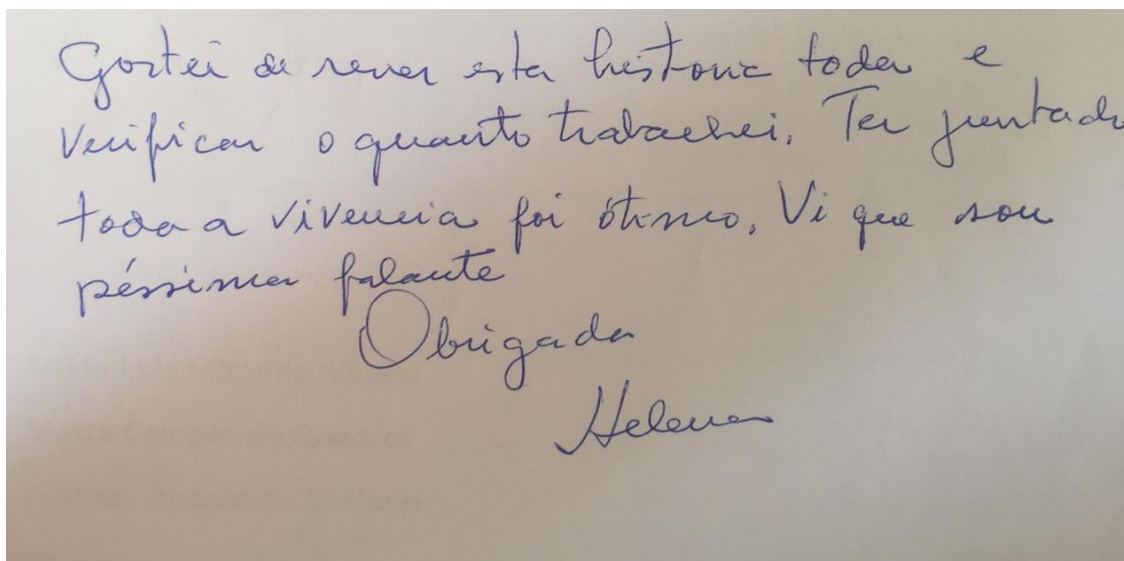 Gostei de rever esta história toda e
verificar o quanto trabalhei. Ter juntado
toda a vivencia foi ótimo. Vi que sou
péssima falante
Obrigada
Helena